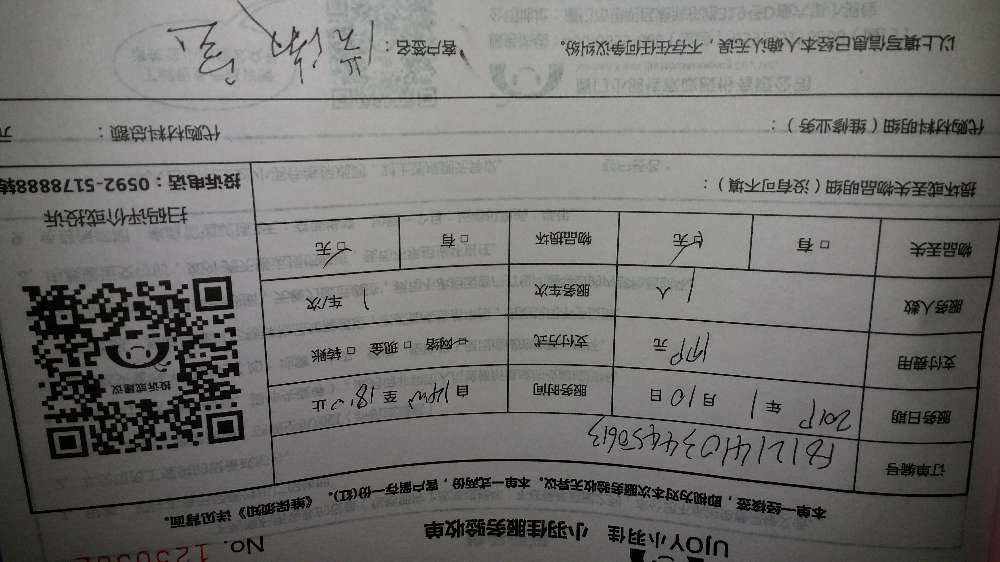 UJOY小羽佳 小羽佳服务验收单 No.
本单一经接签，即视为对本次服务验收无异议。本单一式两份，客户留存一份(红)。《维保须知》详见背面。
订单编号 FB12141034450613
服务日期 2019年1月10日 服务时间 自14:00至18:00止
支付费用 199元 支付方式 □网络 □现金 □转账
服务人数 1人 服务车次 1车/次
物品丢失 □有 □无 物品损坏 □有 □无
损坏或丢失物品明细（没有可不填）：
投诉或建议
扫码评价或投诉
投诉电话：0592-5178888转
代购材料明细（维修业务）： 代购材料总额： 元
以上填写信息已经本人确认无误，不存在任何争议纠纷。 客户签名：